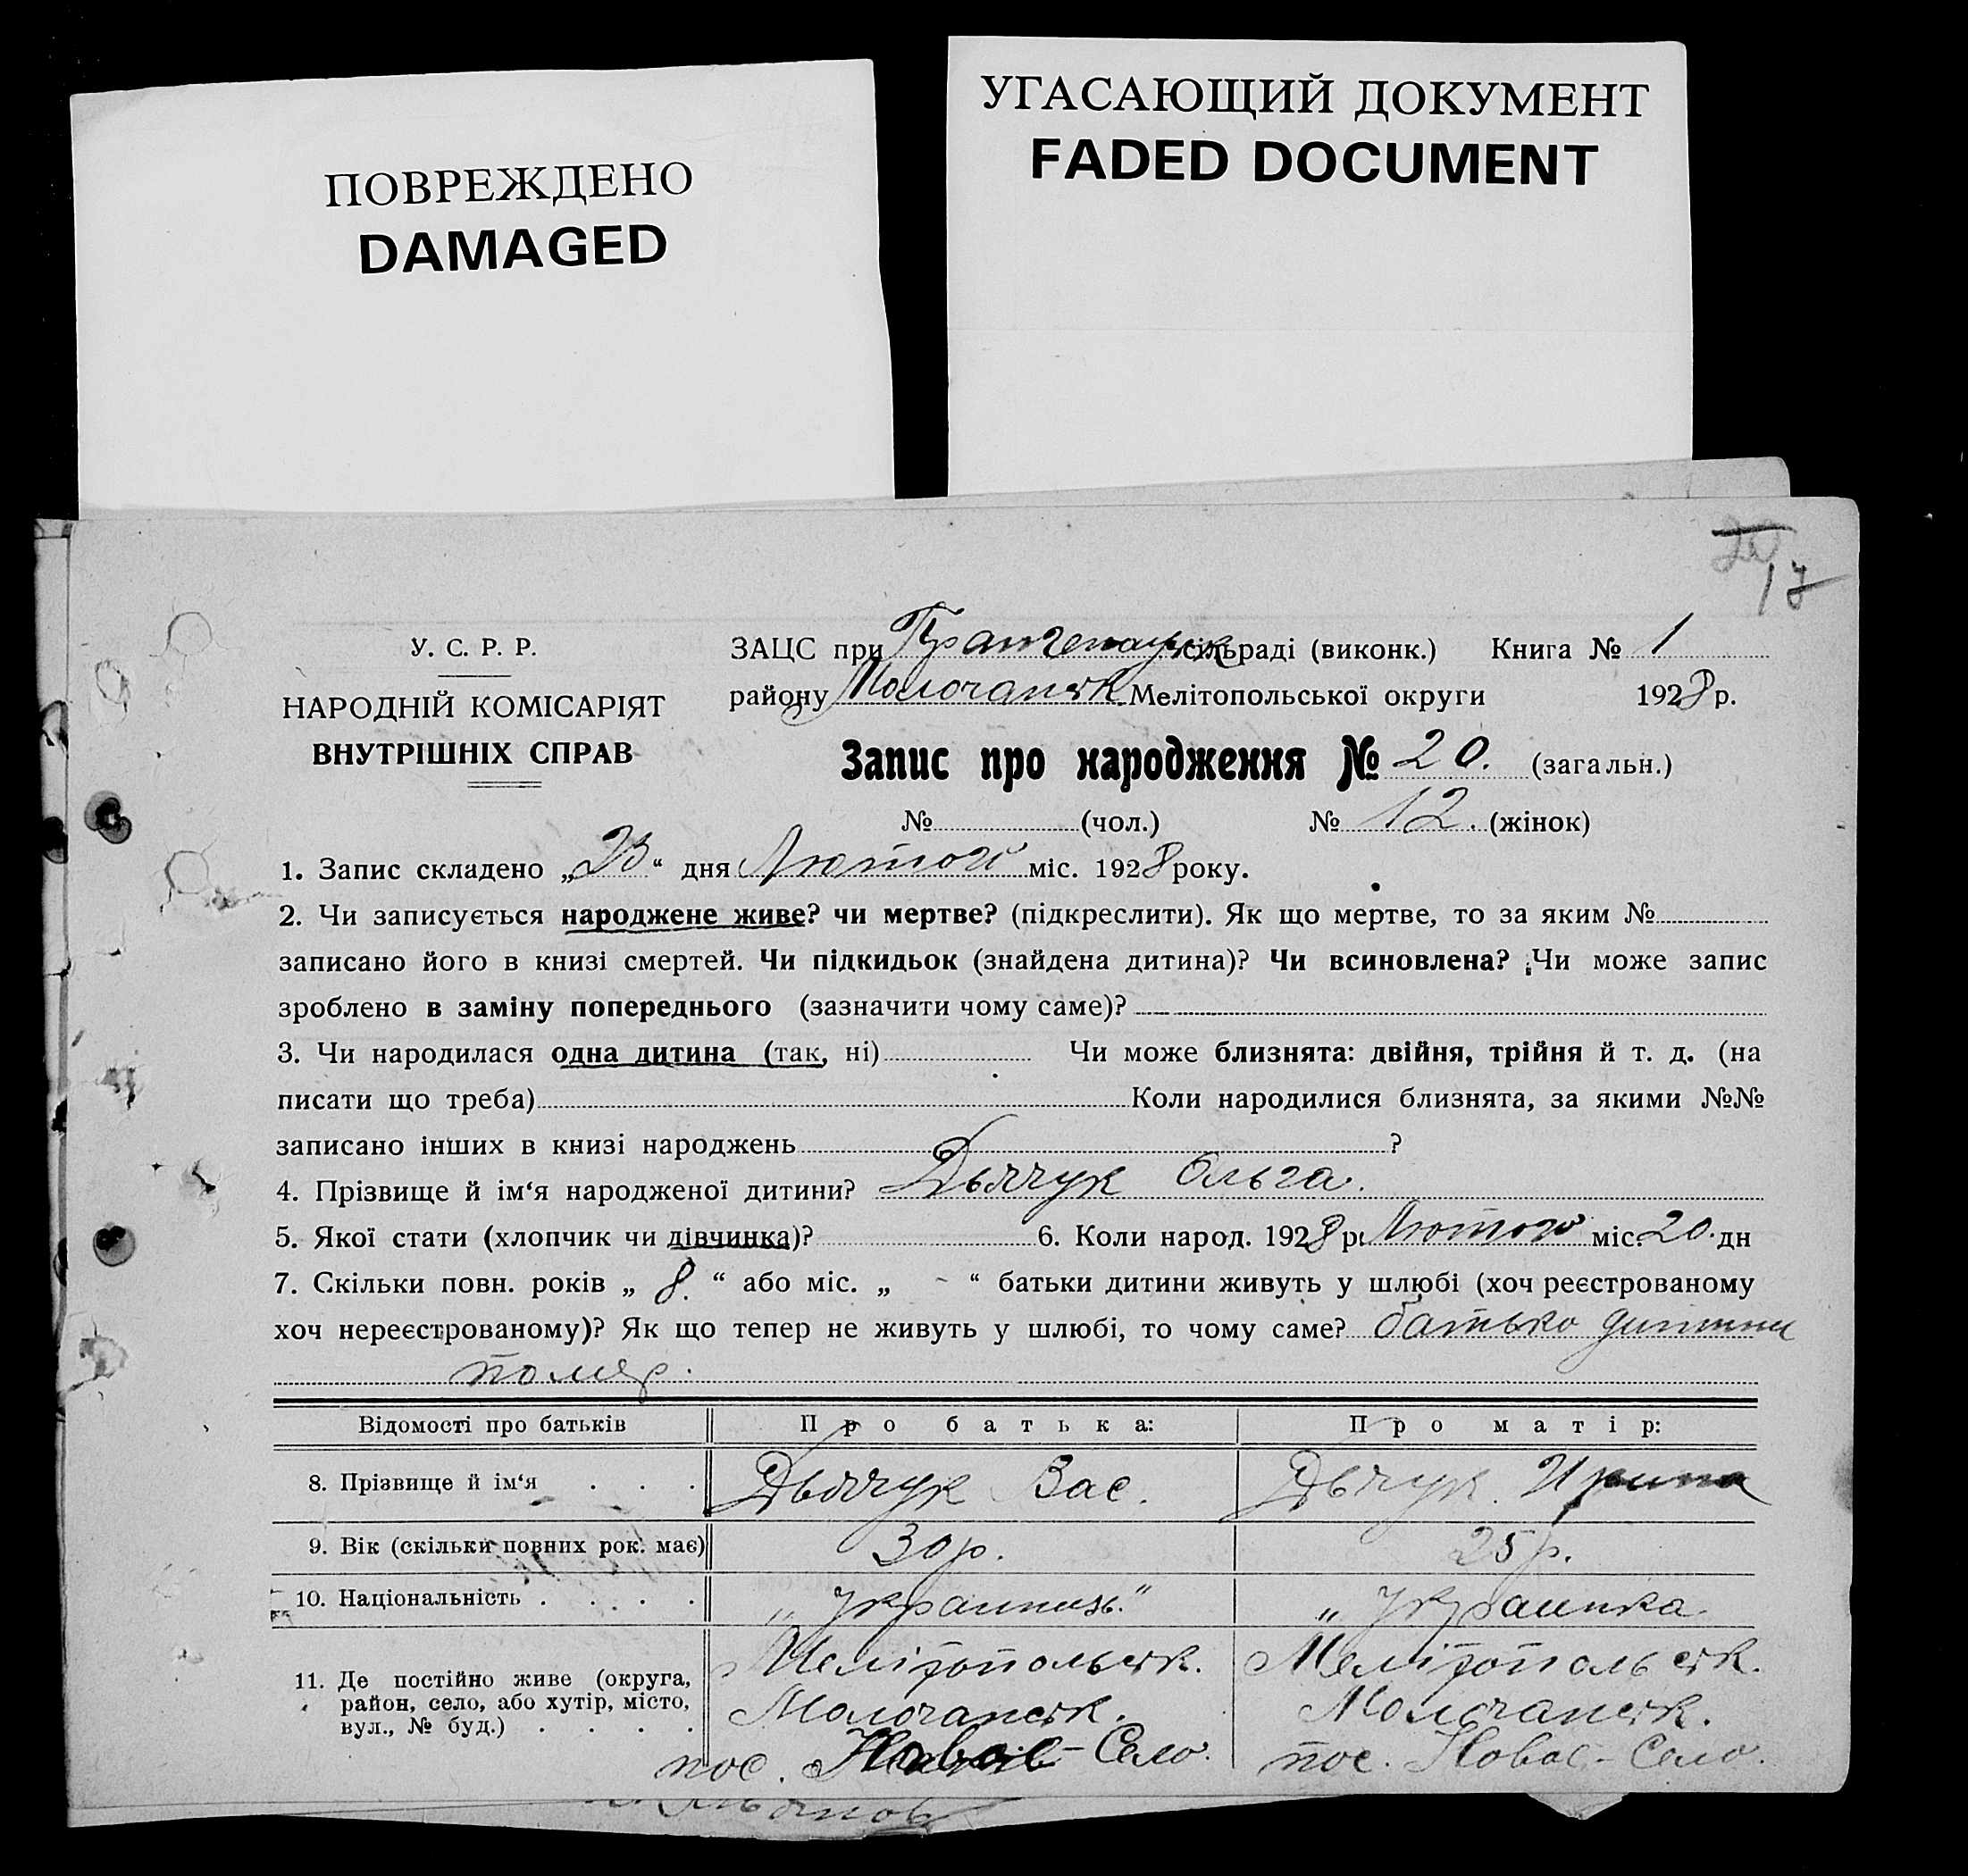 ПОВРЕЖДЕНО
DAMAGED
УГАСАЮЩИЙ ДОКУМЕНТ
FADED DOCUMENT
17
У. С. Р. Р.
НАРОДНІЙ КОМІСАРІЯТ
ВНУТРІШНІХ СПРАВ
ЗАЦС при сільраді (виконк.) Книга № 1
району Молочанськ Мелітопольської округи 1928 р.
Запис про народження № 20. (загальн.)
№ (чол.) № 12. (жінок)
1. Запис складено „23“ дня Лютого міс. 1928 року.
2. Чи записується народжене живе? чи мертве? (підкреслити). Як що мертве, то за яким №
записано його в книзі смертей. Чи підкидьок (знайдена дитина)? Чи всиновлена? Чи може запис
зроблено в заміну попереднього (зазначити чому саме)?
3. Чи народилася одна дитина (так, ні) Чи може близнята: двійня, трійня й т. д. (на
писати що треба) Коли народилися близнята, за якими №№
записано інших в книзі народжень ?
4. Прізвище й ім‘я народженої дитини? Дьячук Ольга.
5. Якої стати (хлопчик чи дівчинка)? 6. Коли народ. 1928 р. Лютого міс. 20. дн
7. Скільки повн. років „ 8. “ або міс. „ - “ батьки дитини живуть у шлюбі (хоч реєстрованому
хоч нереєстрованому)? Як що тепер не живуть у шлюбі, то чому саме? батько дитини
помер.
Відомості про батьків Про батька: Про матір:
8. Прізвище й ім‘я . . . Дьячук Вас. Дьячук. Ирина
9. Вік (скільки повних рок. має) 30 р. 25 р.
10. Національність . . . . „Украинизь.“ „Украинка
11. Де постійно живе (округа, Мелітопольськ. Мелітопольськ.
район, село, або хутір, місто, Молочанськ. Молочанськ.
вул., № буд.) . . . . пос. Новое-Село. пос. Новое-Село.